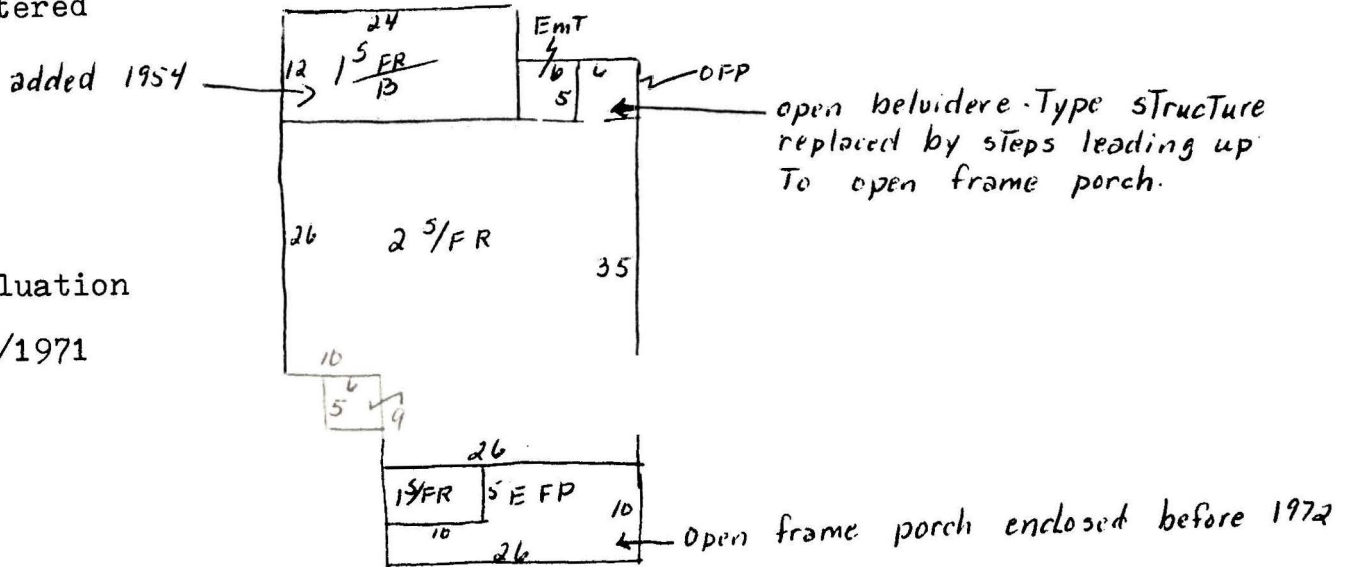 tered
24
EmT
added 1954
12
1 S FR
B
6
6
5
OFP
open belvidere-Type sTrucTure
replaced by sTeps leading up
To open frame porch.
26
2 S/FR
35
luation
/1971
10
6
5
9
26
1 S/FR
5
EFP
10
10
26
Open frame porch enclosed before 1972